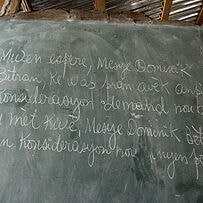 Mwen espere, Mesye Dominik
Bitran, ke w ap pran avèk anp
konsiderasyon demand nou
met Kewè, Mesye Dominik
an Konsiderasyon nou